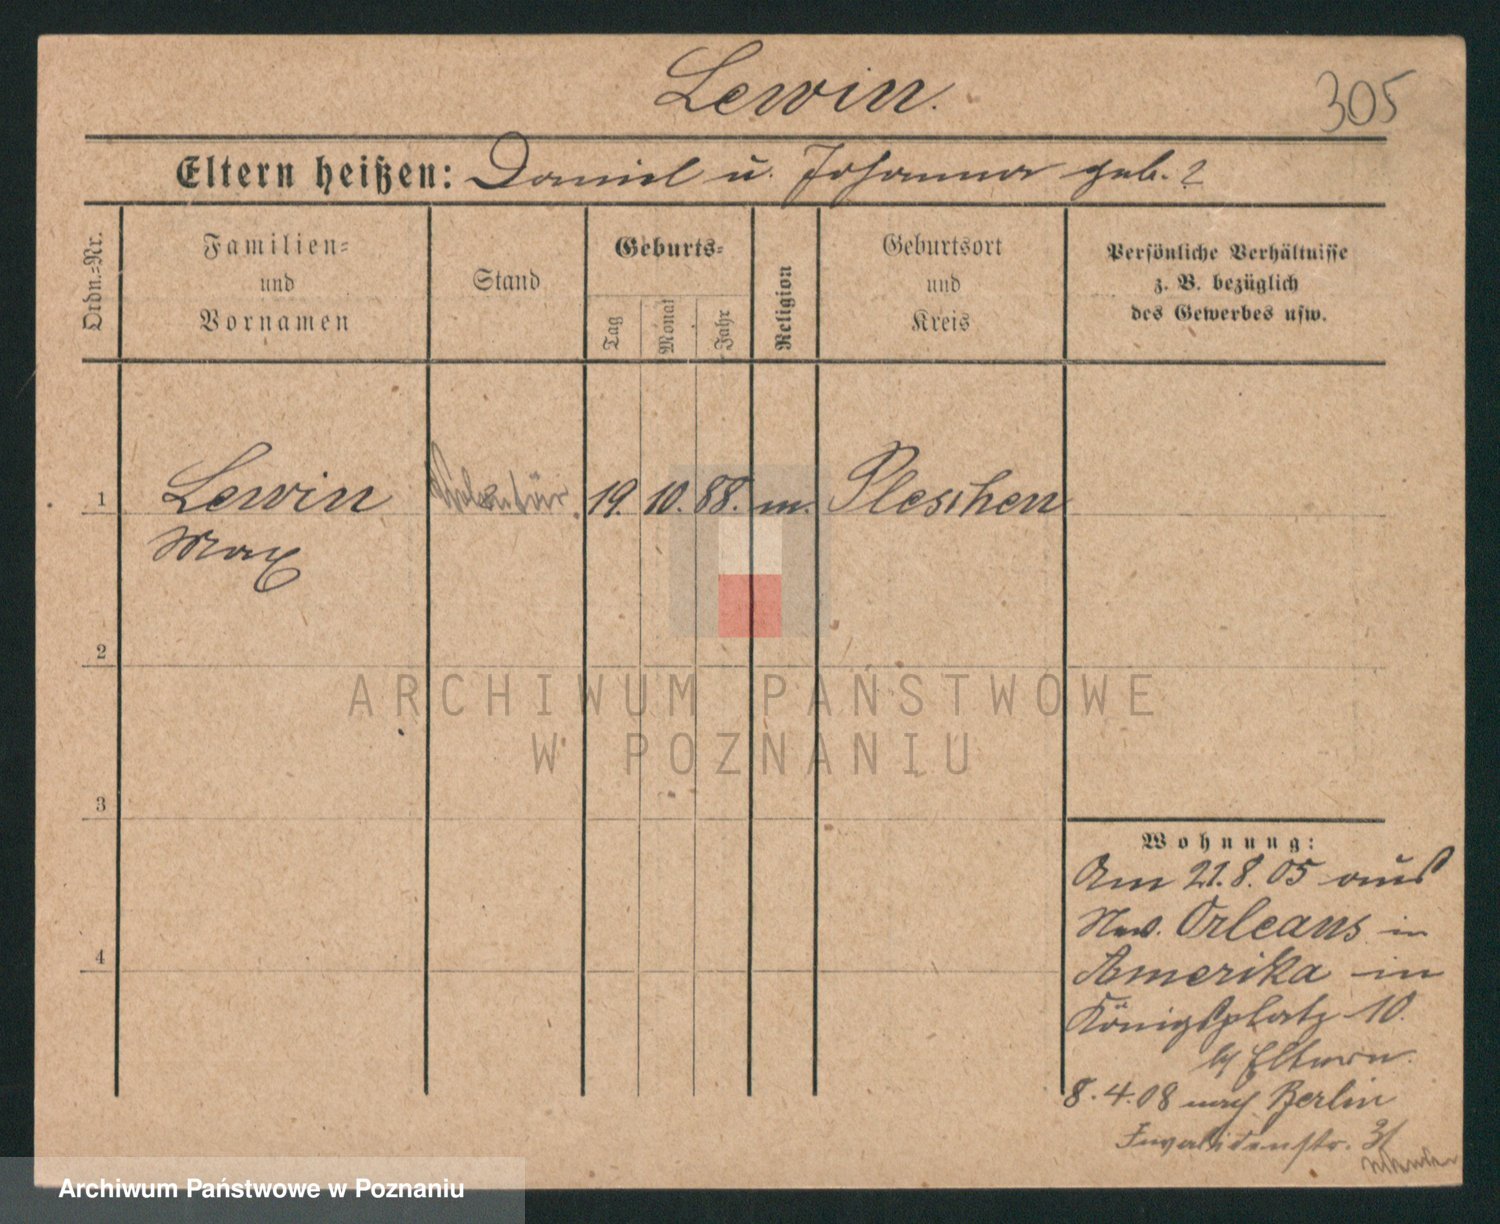 Lewin.
305
Eltern heißen: Daniel u. Johanna geb. ?
Ordn.-Nr.
Familien-
und
Vornamen
Stand
Geburts-
Tag
Monat
Jahr
Religion
Geburtsort
und
Kreis
Persönliche Verhältnisse
z. B. bezüglich
des Gewerbes usw.
1 Lewin 19. 10. 88. m. Pleschen
Max
2
ARCHIWUM PAŃSTWOWE
W POZNANIU
3
Wohnung:
Am 21.8.05 aus
New. Orleans in
4
Amerika in
Königsplatz 10.
b/ Eltern.
8.4.08 nach Berlin
Invalidenstr.
Archiwum Państwowe w Poznaniu